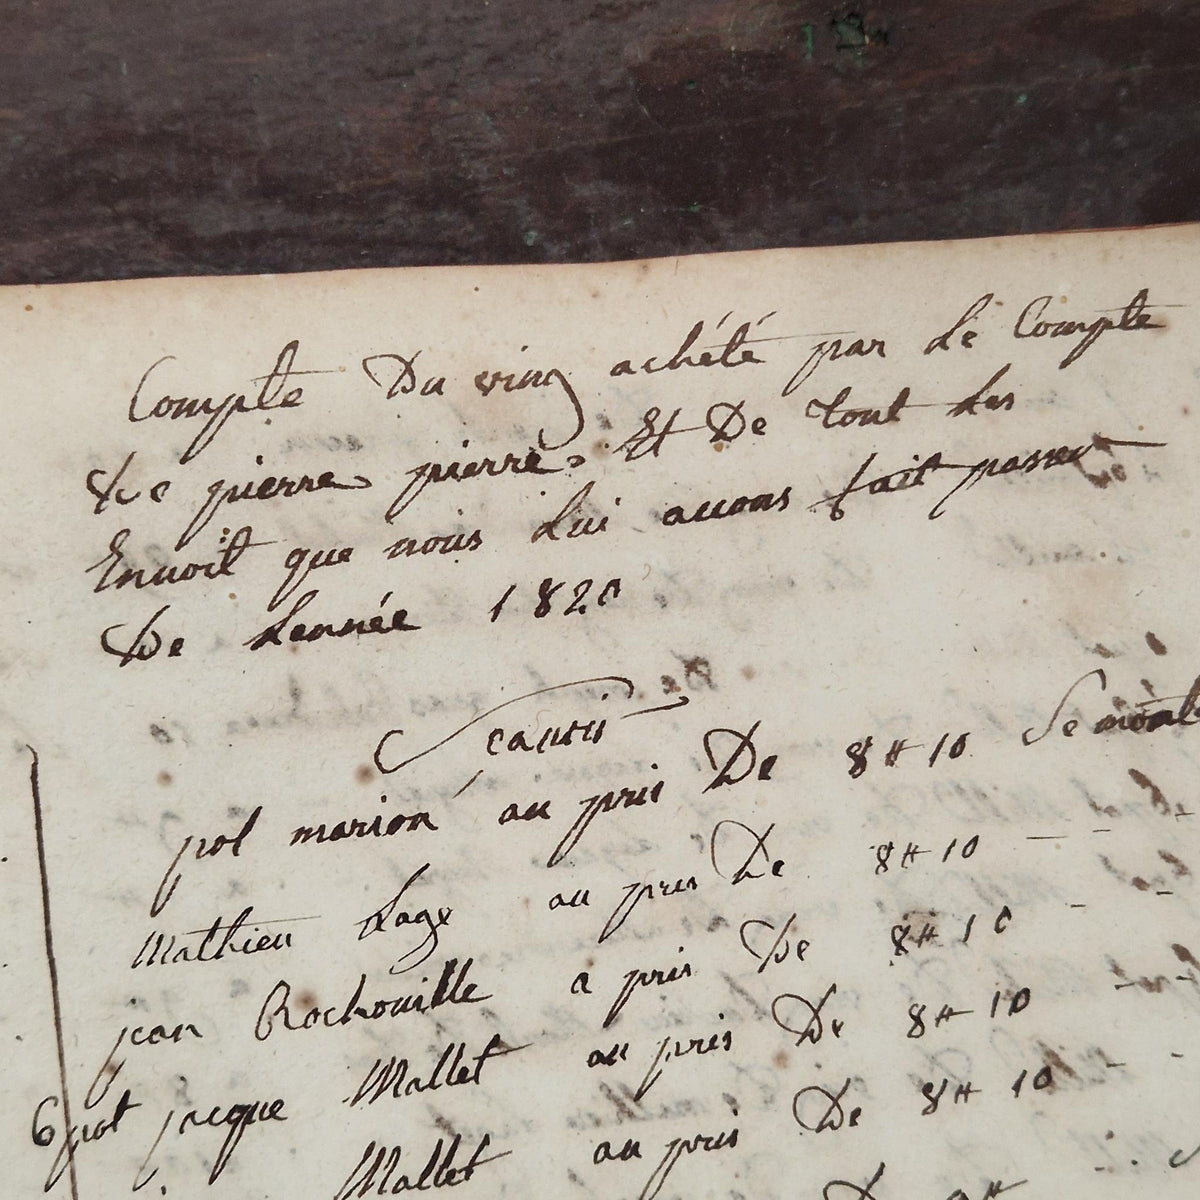 Compte Du ving achété par Le Compte
De pierre pierre Et De tout Les
Envoit que nous Lui avons fait passer
De Lennée 1820
Scavoir
pol marion au pris De 8 ₶ 10 Se monte
Mathieu Lage au pris De 8 ₶ 10
jean Rochouille a pris De 8 ₶ 10
6 pot jacque Mallet au pris De 8 ₶ 10
Mallet au pris De 8 ₶ 10
De